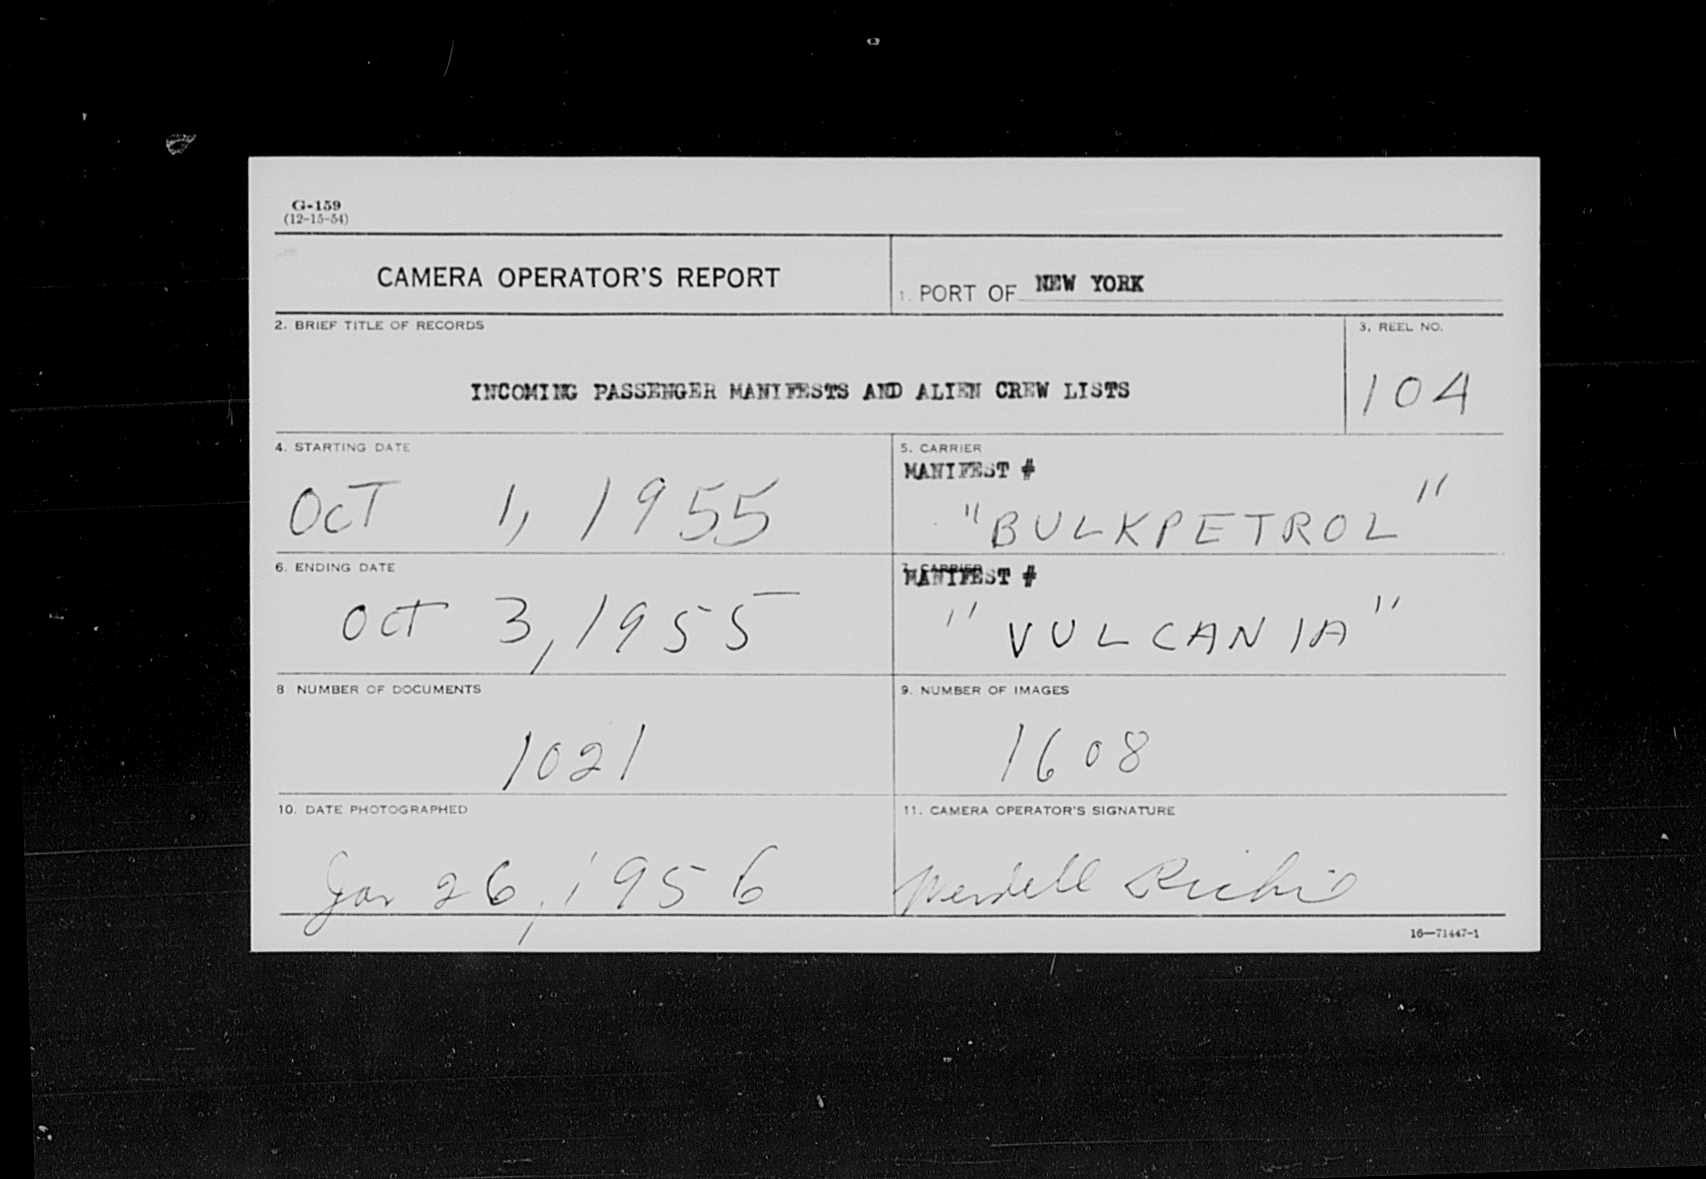 G-159
(12-15-54)
CAMERA OPERATOR'S REPORT
1. PORT OF NEW YORK
2. BRIEF TITLE OF RECORDS
3. REEL NO.
INCOMING PASSENGER MANIFESTS AND ALIEN CREW LISTS
104
4. STARTING DATE
5. CARRIER
MANIFEST #
OCT 1, 1955
"BULKPETROL"
6. ENDING DATE
7. CARRIER
MANIFEST #
OCT 3, 1955
"VULCANIA"
8 NUMBER OF DOCUMENTS
9. NUMBER OF IMAGES
1021
1608
10. DATE PHOTOGRAPHED
11. CAMERA OPERATOR'S SIGNATURE
Jan 26, 1956
Wendell
16—71447-1